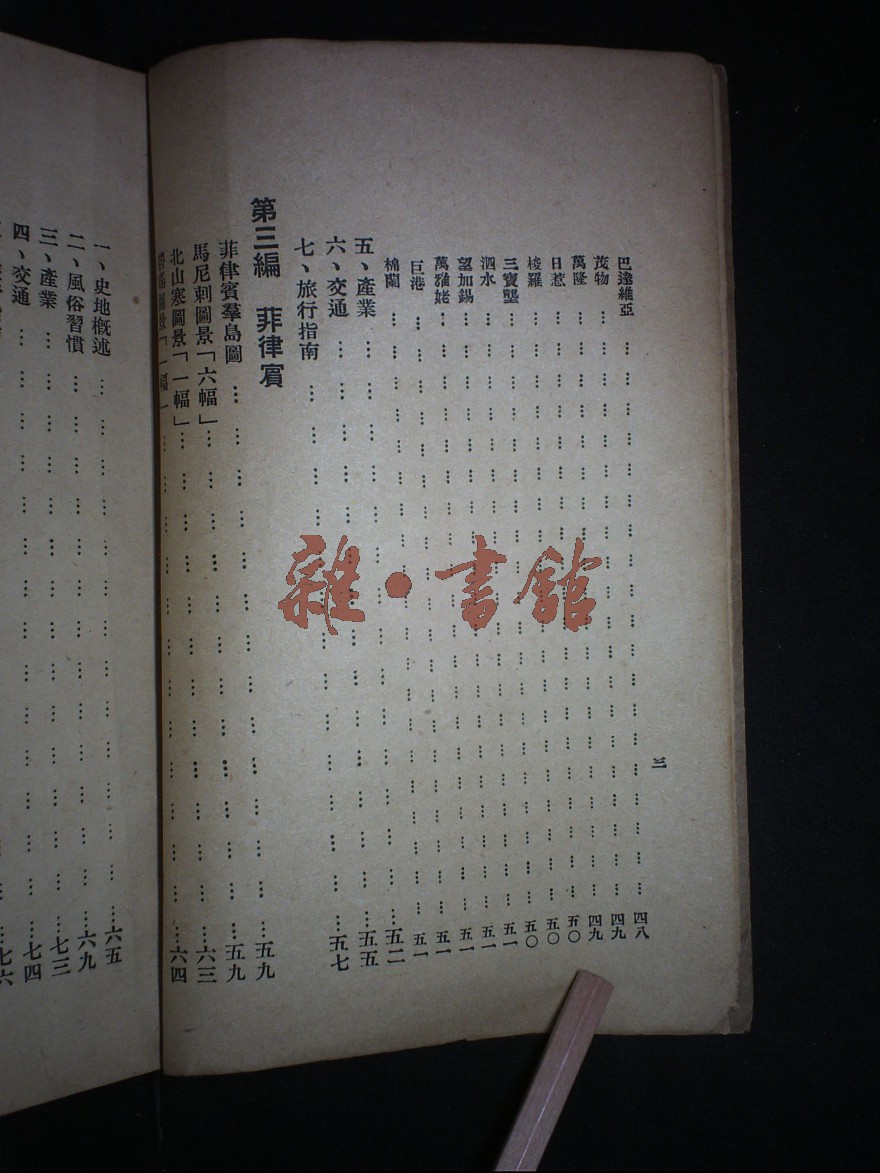 巴達維亞 … … … … … … … … … … … … … … … … 四八
茂物 … … … … … … … … … … … … … … … … 四九
萬隆 … … … … … … … … … … … … … … … … 四九
日惹 … … … … … … … … … … … … … … … … 五〇
梭羅 … … … … … … … … … … … … … … … … 五〇
三寶壟 … … … … … … … … … … … … … … … … 五〇
泗水 … … … … … … … … … … … … … … … … 五一
望加錫 … … … … … … … … … … … … … … … … 五一
萬雅姥 … … … … … … … … … … … … … … … … 五一
巨港 … … … … … … … … … … … … … … … … 五一
棉蘭 … … … … … … … … … … … … … … … … 五一
五、產業 … … … … … … … … … … … … … … … 五二
六、交通 … … … … … … … … … … … … … … … 五五
七、旅行指南 … … … … … … … … … … … … … … 五七
第三編 菲律賓 … … … … … … 五九
菲律賓羣島圖 … … … … … … … … … … … … … 五九
馬尼刺圖景「六幅」 … … … … … … … … … … … … 六三
北山寨圖景「一幅」 … … … … … … … … … … … … 六四
一、史地概述 … … … … … … … … … … … … … … 六五
二、風俗習慣 … … … … … … … … … … … … … … 六九
三、產業 … … … … … … … … … … … … … … … 七三
四、交通 … … … … … … … … … … … … … … … 七四
七六
雜・書館